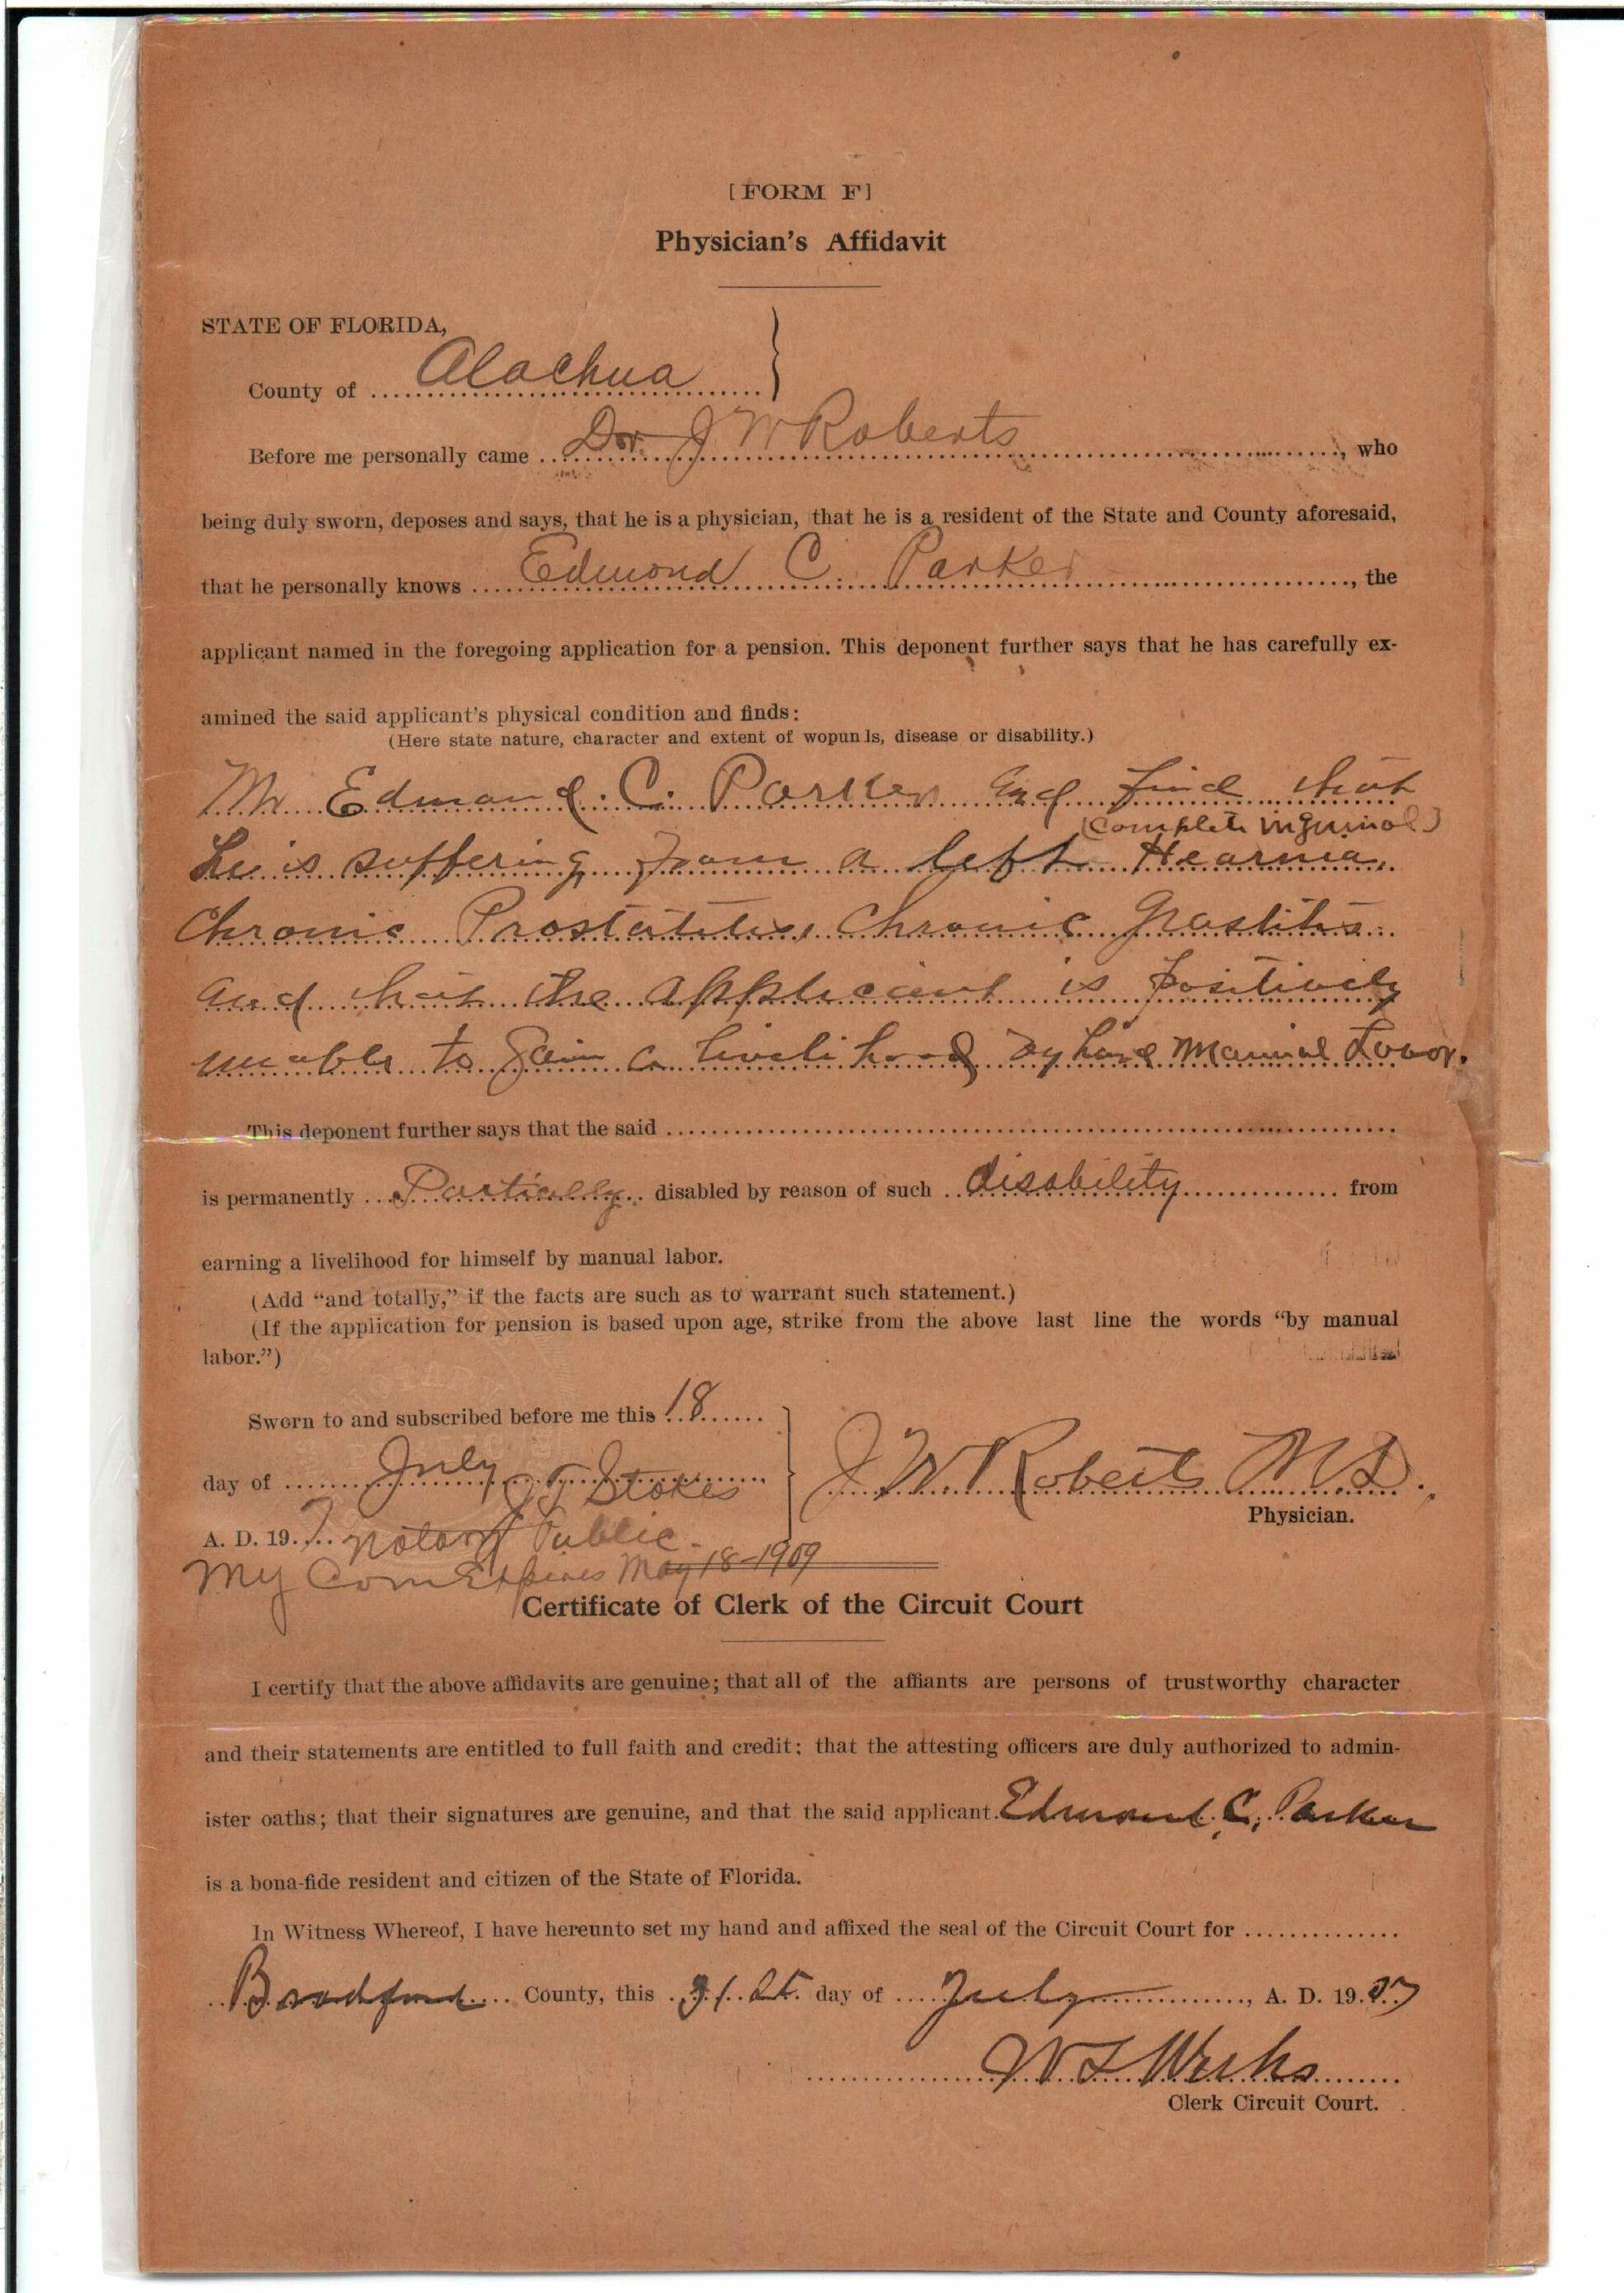 [FORM F]
Physician's Affidavit
STATE OF FLORIDA,
County of Alachua
Before me personally came Dr. J W Roberts, who
being duly sworn, deposes and says, that he is a physician, that he is a resident of the State and County aforesaid,
that he personally knows Edmond C. Parker, the
applicant named in the foregoing application for a pension. This deponent further says that he has carefully ex-
amined the said applicant's physical condition and finds:
(Here state nature, character and extent of wopunls, disease or disability.)
Mr Edmond. C. Parker and find that
(Complete inguinal)
he is suffering from a left Hearnia.
Chronic Prostatites, Chronic Grastitis
and that the applicant is positively
unable to gain a livelihood by hard Manual Labor.
This deponent further says that the said
is permanently Partially disabled by reason of such disability from
earning a livelihood for himself by manual labor.
(Add “and totally,” if the facts are such as to warrant such statement.)
(If the application for pension is based upon age, strike from the above last line the words “by manual
labor.”)
Sworn to and subscribed before me this 18
day of July
J T Stokes
J. W. Roberts M D.
Physician.
A. D. 19 7 Notary Public.
My Com Expires May 18-1909
Certificate of Clerk of the Circuit Court
I certify that the above affidavits are genuine; that all of the affiants are persons of trustworthy character
and their statements are entitled to full faith and credit; that the attesting officers are duly authorized to admin-
ister oaths; that their signatures are genuine, and that the said applicant Edmond C. Parker
is a bona-fide resident and citizen of the State of Florida.
In Witness Whereof, I have hereunto set my hand and affixed the seal of the Circuit Court for
Bradford County, this 31st day of July, A. D. 19 07
Weeks
Clerk Circuit Court.